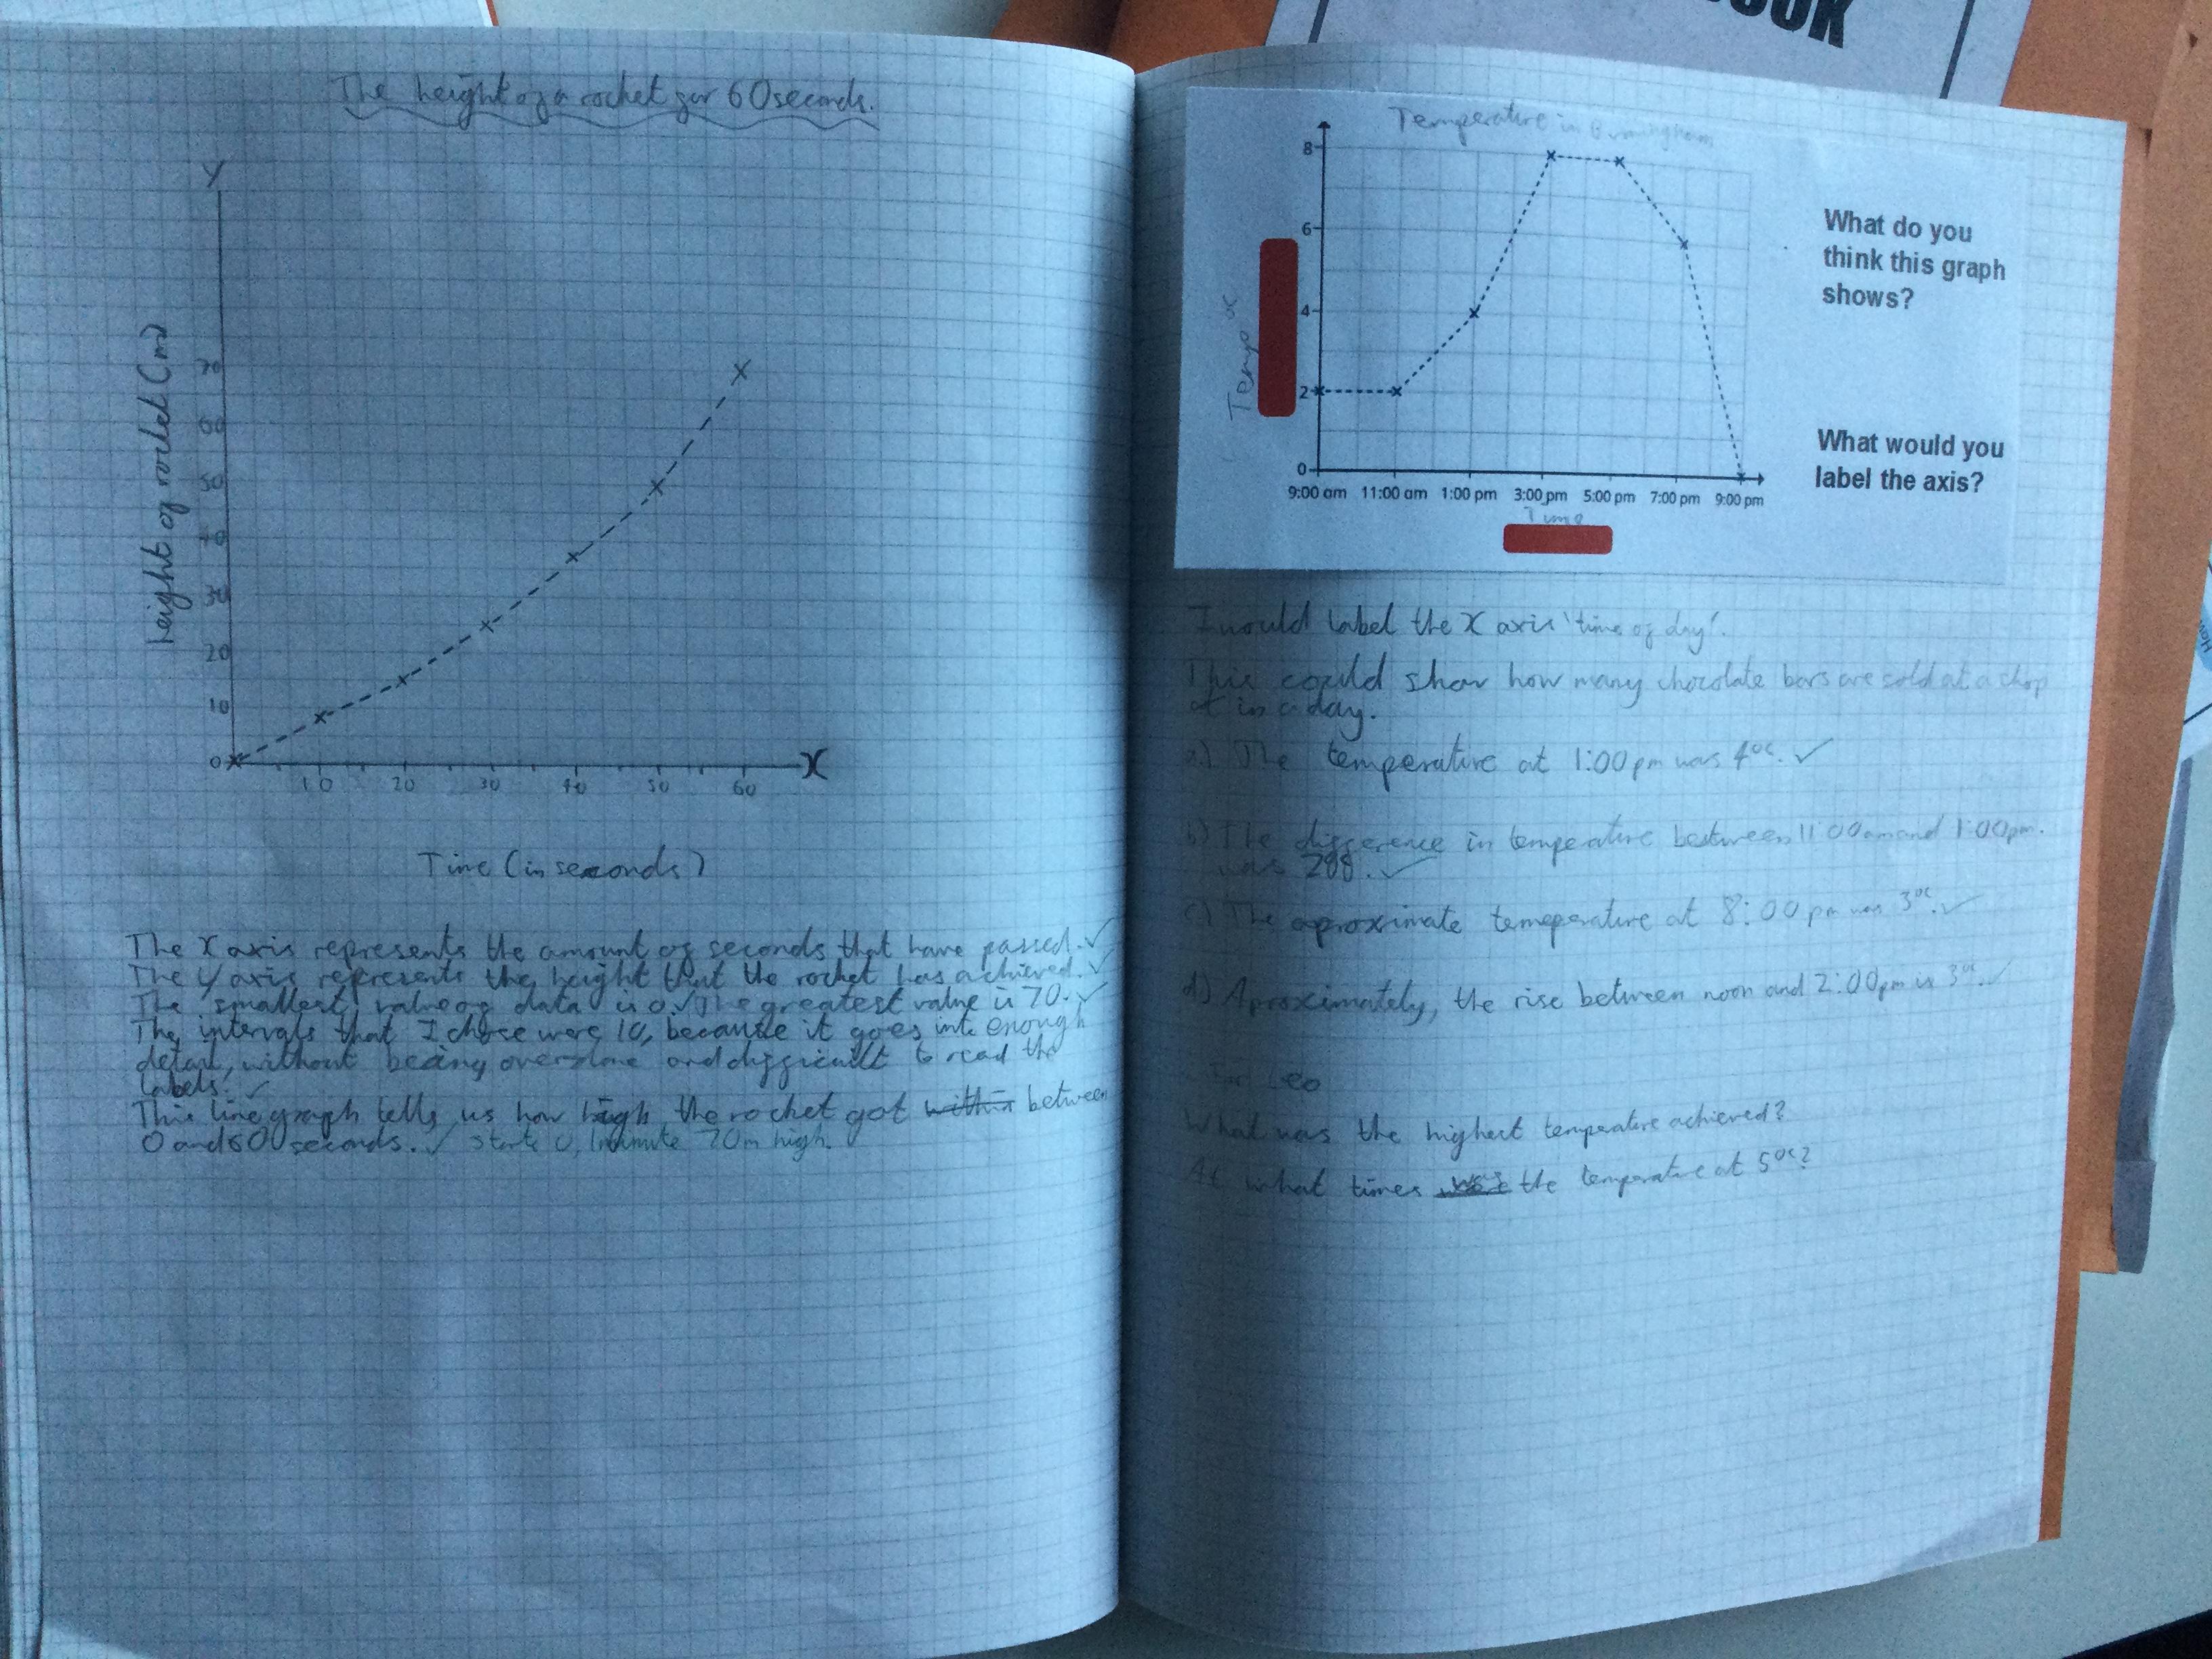 OOK
The height of a rocket for 60 seconds.
Y
height of rocket (m)
70
60
50
40
30
20
10
0
10 20 30 40 50 60
X
Time (in seconds)
The X axis represents the amount of seconds that have passed. ✓
The Y axis represents the height that the rocket has achieved. ✓
The smallest value of data is 0. ✓ The greatest value is 70. ✓
The intervals that I chose were 10, because it goes into enough
detail, without being overdone and difficult to read the
labels. ✓
This line graph tells us how high the rocket got within between
0 and 60 seconds. ✓ starts 0, 1 minute 70m high.
Temperature in Birmingham
8
6
4
2
0
Temp °c
9:00 am 11:00 am 1:00 pm 3:00 pm 5:00 pm 7:00 pm 9:00 pm
Time
What do you
think this graph
shows?
What would you
label the axis?
I would label the X axis 'time of day'.
This could show how many chocolate bars are sold at a shop
in a day.
a) The temperature at 1:00pm was 4°c. ✓
b) The difference in temperature bestween 11:00am and 1:00pm.
was ✓
c) The aproximate temeperature at 8:00pm was 3°c. ✓
d) Aproximately, the rise between noon and 2:00pm is 3°c. ✓
For Leo
What was the highest temperature achieved?
At what times was the temperature at 5°c?